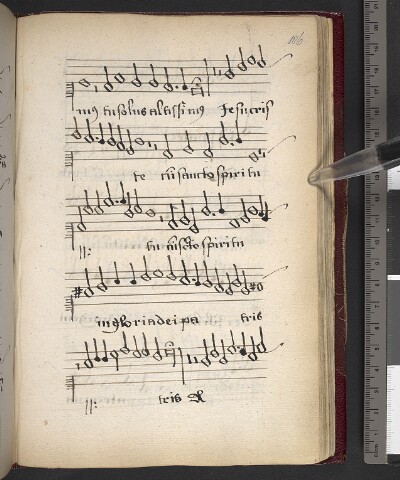 186
mus tu solus altissimus Jesu cris
te cum sancto spiritu
ij: cum scto spiritu
in gloria dei pa tris
ij: tris A